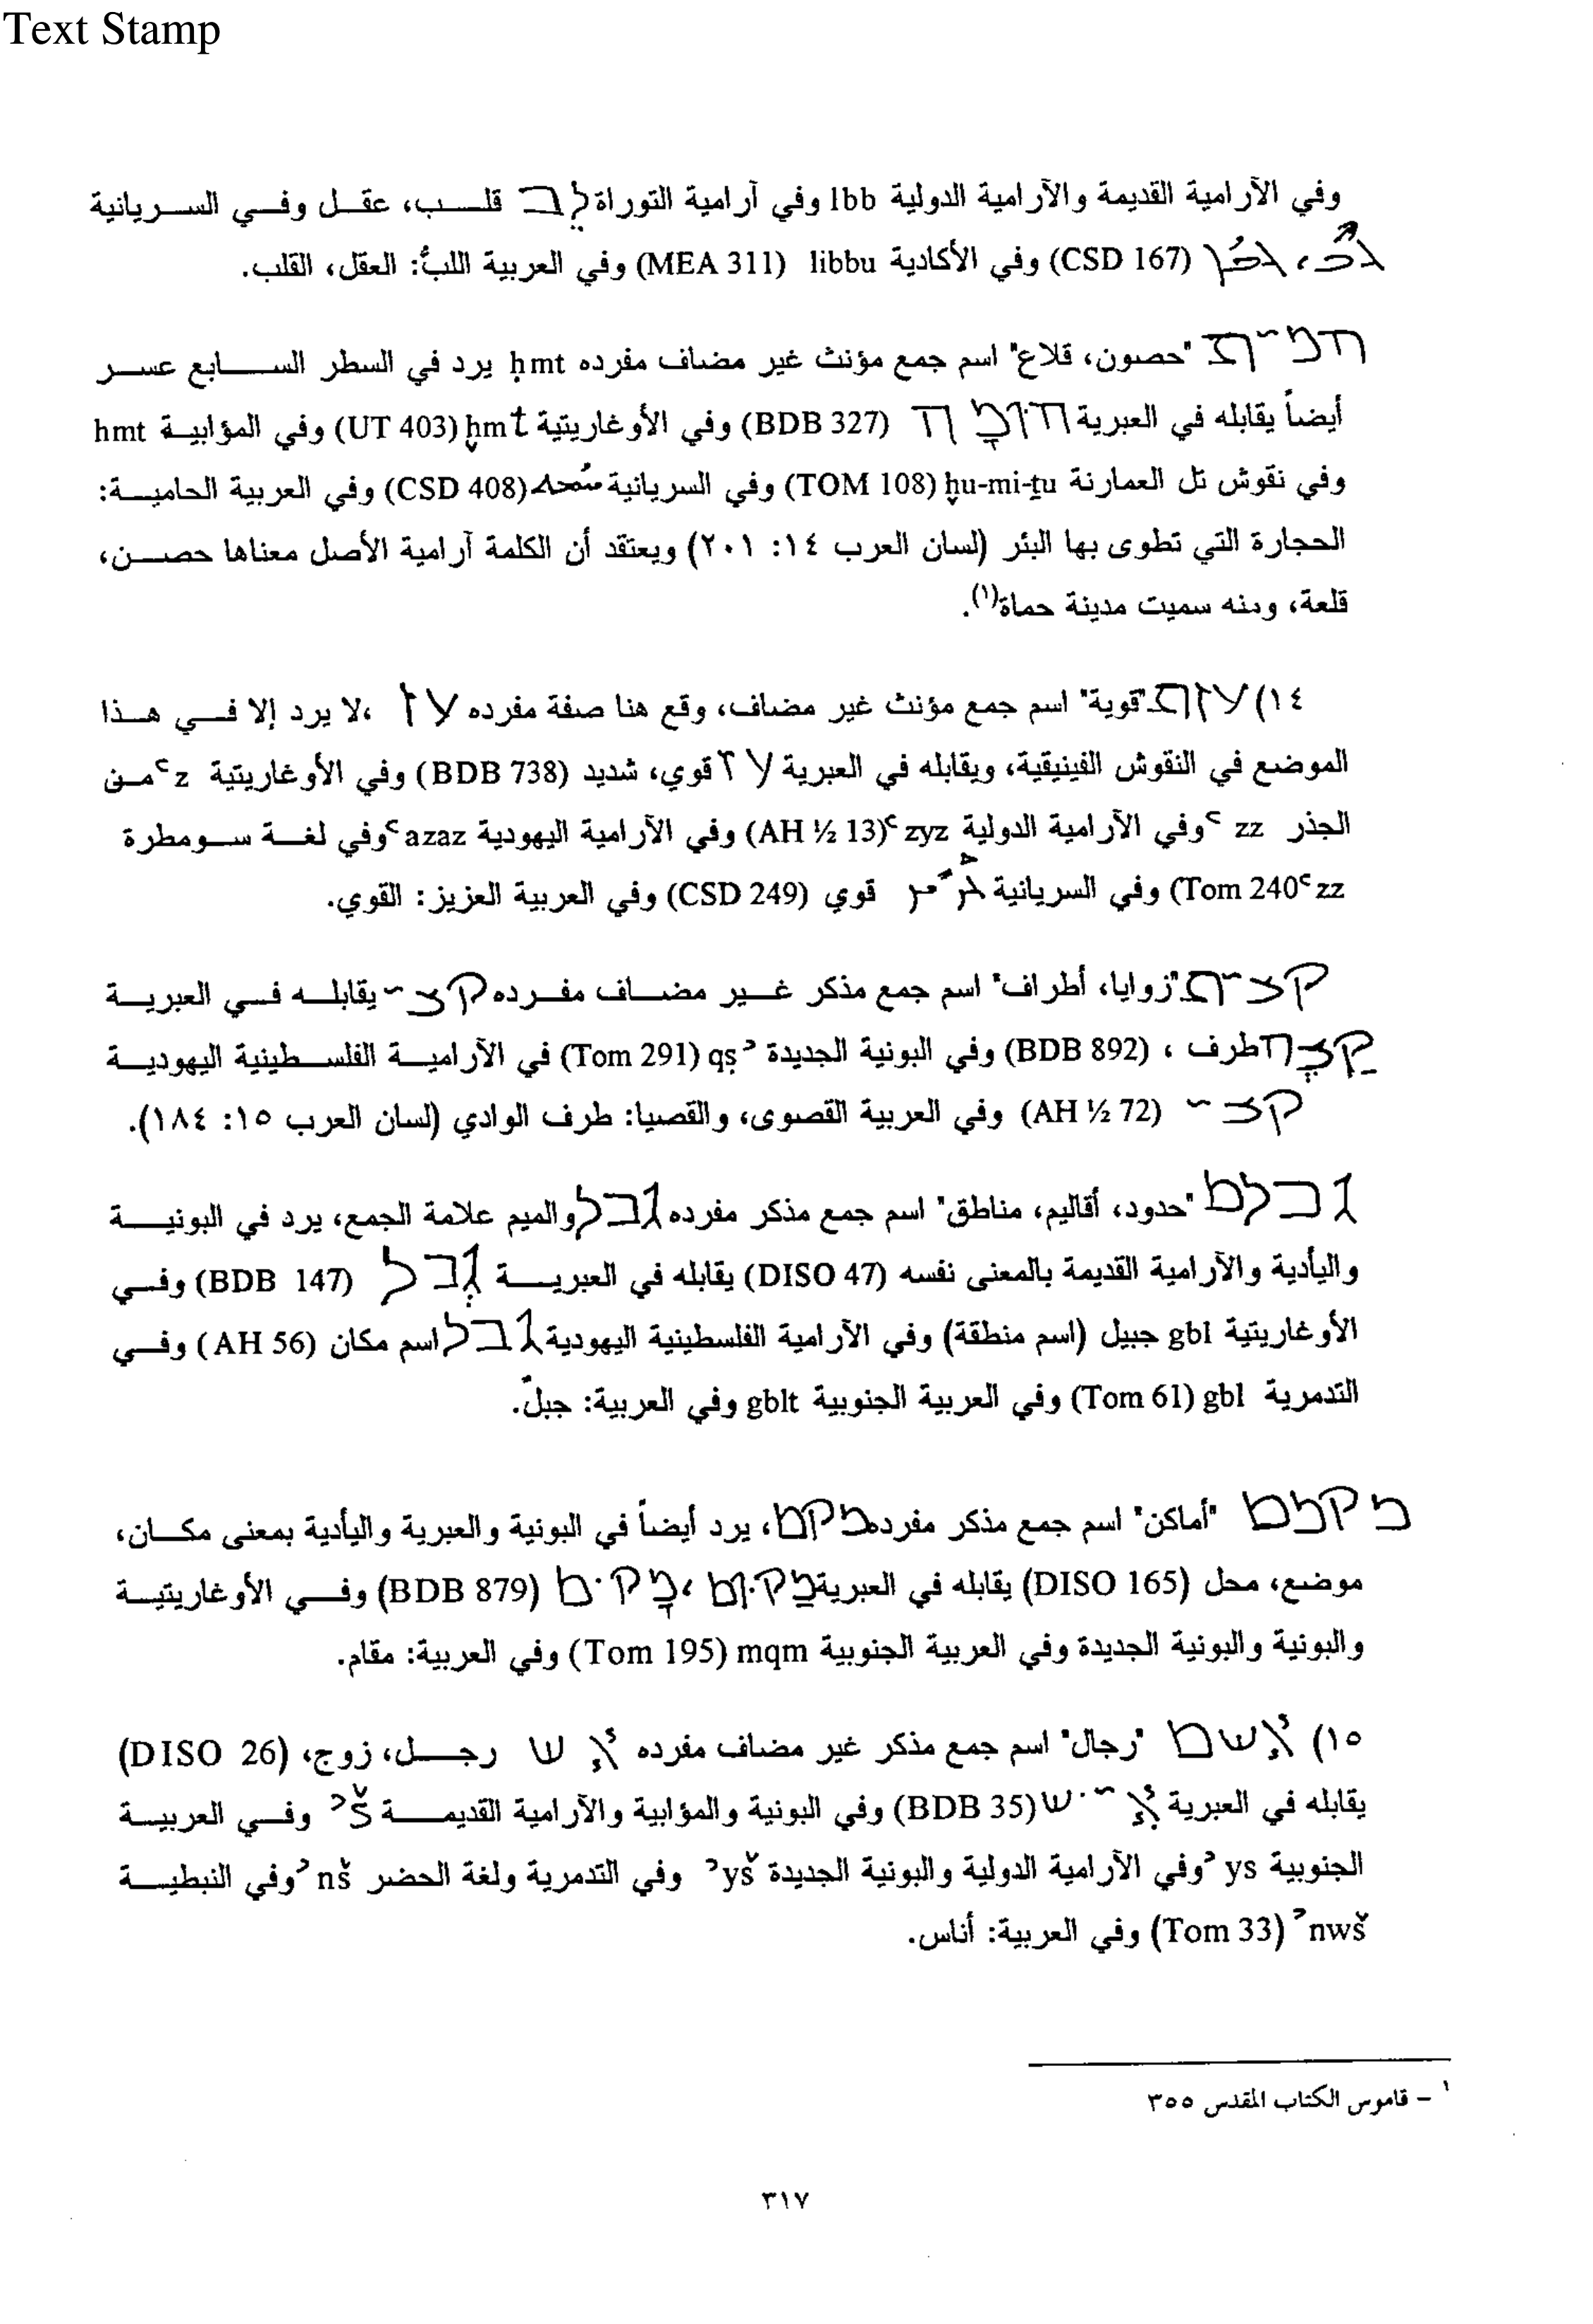 Text Stamp
وفي الآرامية القديمة والآرامية الدولية lbb وفي آرامية التوراة לב قلب، عقل وفي السريانية
(CSD 167) وفي الأكادية libbu (MEA 311) وفي العربية اللبُّ: العقل، القلب.
חמית "حصون، قلاع" اسم جمع مؤنث غير مضاف مفرده ḥmt يرد في السطر السابع عسر
أيضاً يقابله في العبرية חוֹמָה (BDB 327) وفي الأوغاريتية ḫmt (UT 403) وفي المؤابية hmt
وفي نقوش تل العمارنة ḫu-mi-ṯu (TOM 108) وفي السريانية (CSD 408) وفي العربية الحامية:
الحجارة التي تطوى بها البئر (لسان العرب ١٤: ٢٠١) ويعتقد أن الكلمة آرامية الأصل معناها حصن،
قلعة، ومنه سميت مدينة حماة(١).
١٤) עזת "قوية" اسم جمع مؤنث غير مضاف، وقع هنا صفة مفرده עז، لا يرد إلا في هذا
الموضع في النقوش الفينيقية، ويقابله في العبرية עז قوي، شديد (BDB 738) وفي الأوغاريتية ʿz من
الجذر ʿzz وفي الآرامية الدولية ʿzyz (AH ½ 13) وفي الآرامية اليهودية ʿazaz وفي لغة سومطرة
ʿzz (Tom 240 وفي السريانية قوي (CSD 249) وفي العربية العزيز: القوي.
קצית "زوايا، أطراف" اسم جمع مذكر غير مضاف مفرده קצי يقابله في العبرية
קָצֶה طرف، (BDB 892) وفي البونية الجديدة qṣʾ (Tom 291) في الآرامية الفلسطينية اليهودية
קצי (AH ½ 72) وفي العربية القصوى، والقصيا: طرف الوادي (لسان العرب ١٥: ١٨٤).
גבלם "حدود، أقاليم، مناطق" اسم جمع مذكر مفرده גבל والميم علامة الجمع، يرد في البونية
واليأدية والآرامية القديمة بالمعنى نفسه (DISO 47) يقابله في العبرية גבל (BDB 147) وفي
الأوغاريتية gbl جبيل (اسم منطقة) وفي الآرامية الفلسطينية اليهودية גבל اسم مكان (AH 56) وفي
التدمرية gbl (Tom 61) وفي العربية الجنوبية gblt وفي العربية: جبل.
מקמם "أماكن" اسم جمع مذكر مفرده מקם، يرد أيضاً في البونية والعبرية واليأدية بمعنى مكان،
موضع، محل (DISO 165) يقابله في العبرية מָקוֹם، מָקֹם (BDB 879) وفي الأوغاريتية
والبونية والبونية الجديدة وفي العربية الجنوبية mqm (Tom 195) وفي العربية: مقام.
١٥) אשם "رجال" اسم جمع مذكر غير مضاف مفرده אש رجل، زوج، (DISO 26)
يقابله في العبرية אִישׁ (BDB 35) وفي البونية والمؤابية والآرامية القديمة ʾš وفي العربية
الجنوبية ʾys وفي الآرامية الدولية والبونية الجديدة ʾyš وفي التدمرية ولغة الحضر ʾnš وفي النبطية
ʾnwš (Tom 33) وفي العربية: أناس.
١ – قاموس الكتاب المقدس ٣٥٥
٣١٧